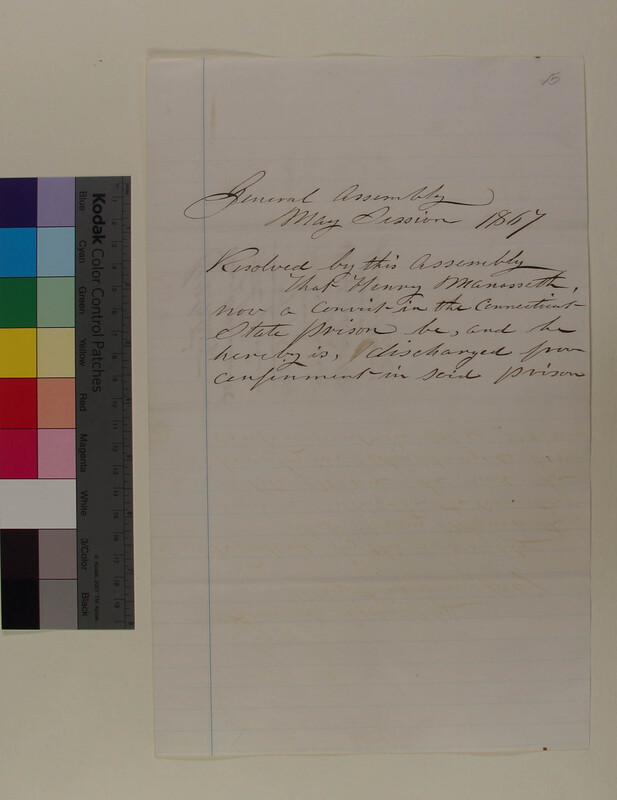 15
General Assembly
May Session 1867
Resolved by this Assembly
That Henry Manasseth,
now a convict in the Connecticut
State prison be, and he
hereby is, discharged from
confinement in said prison
Kodak Color Control Patches
Blue
Cyan
Green
Yellow
Red
Magenta
White
3/Color
Black